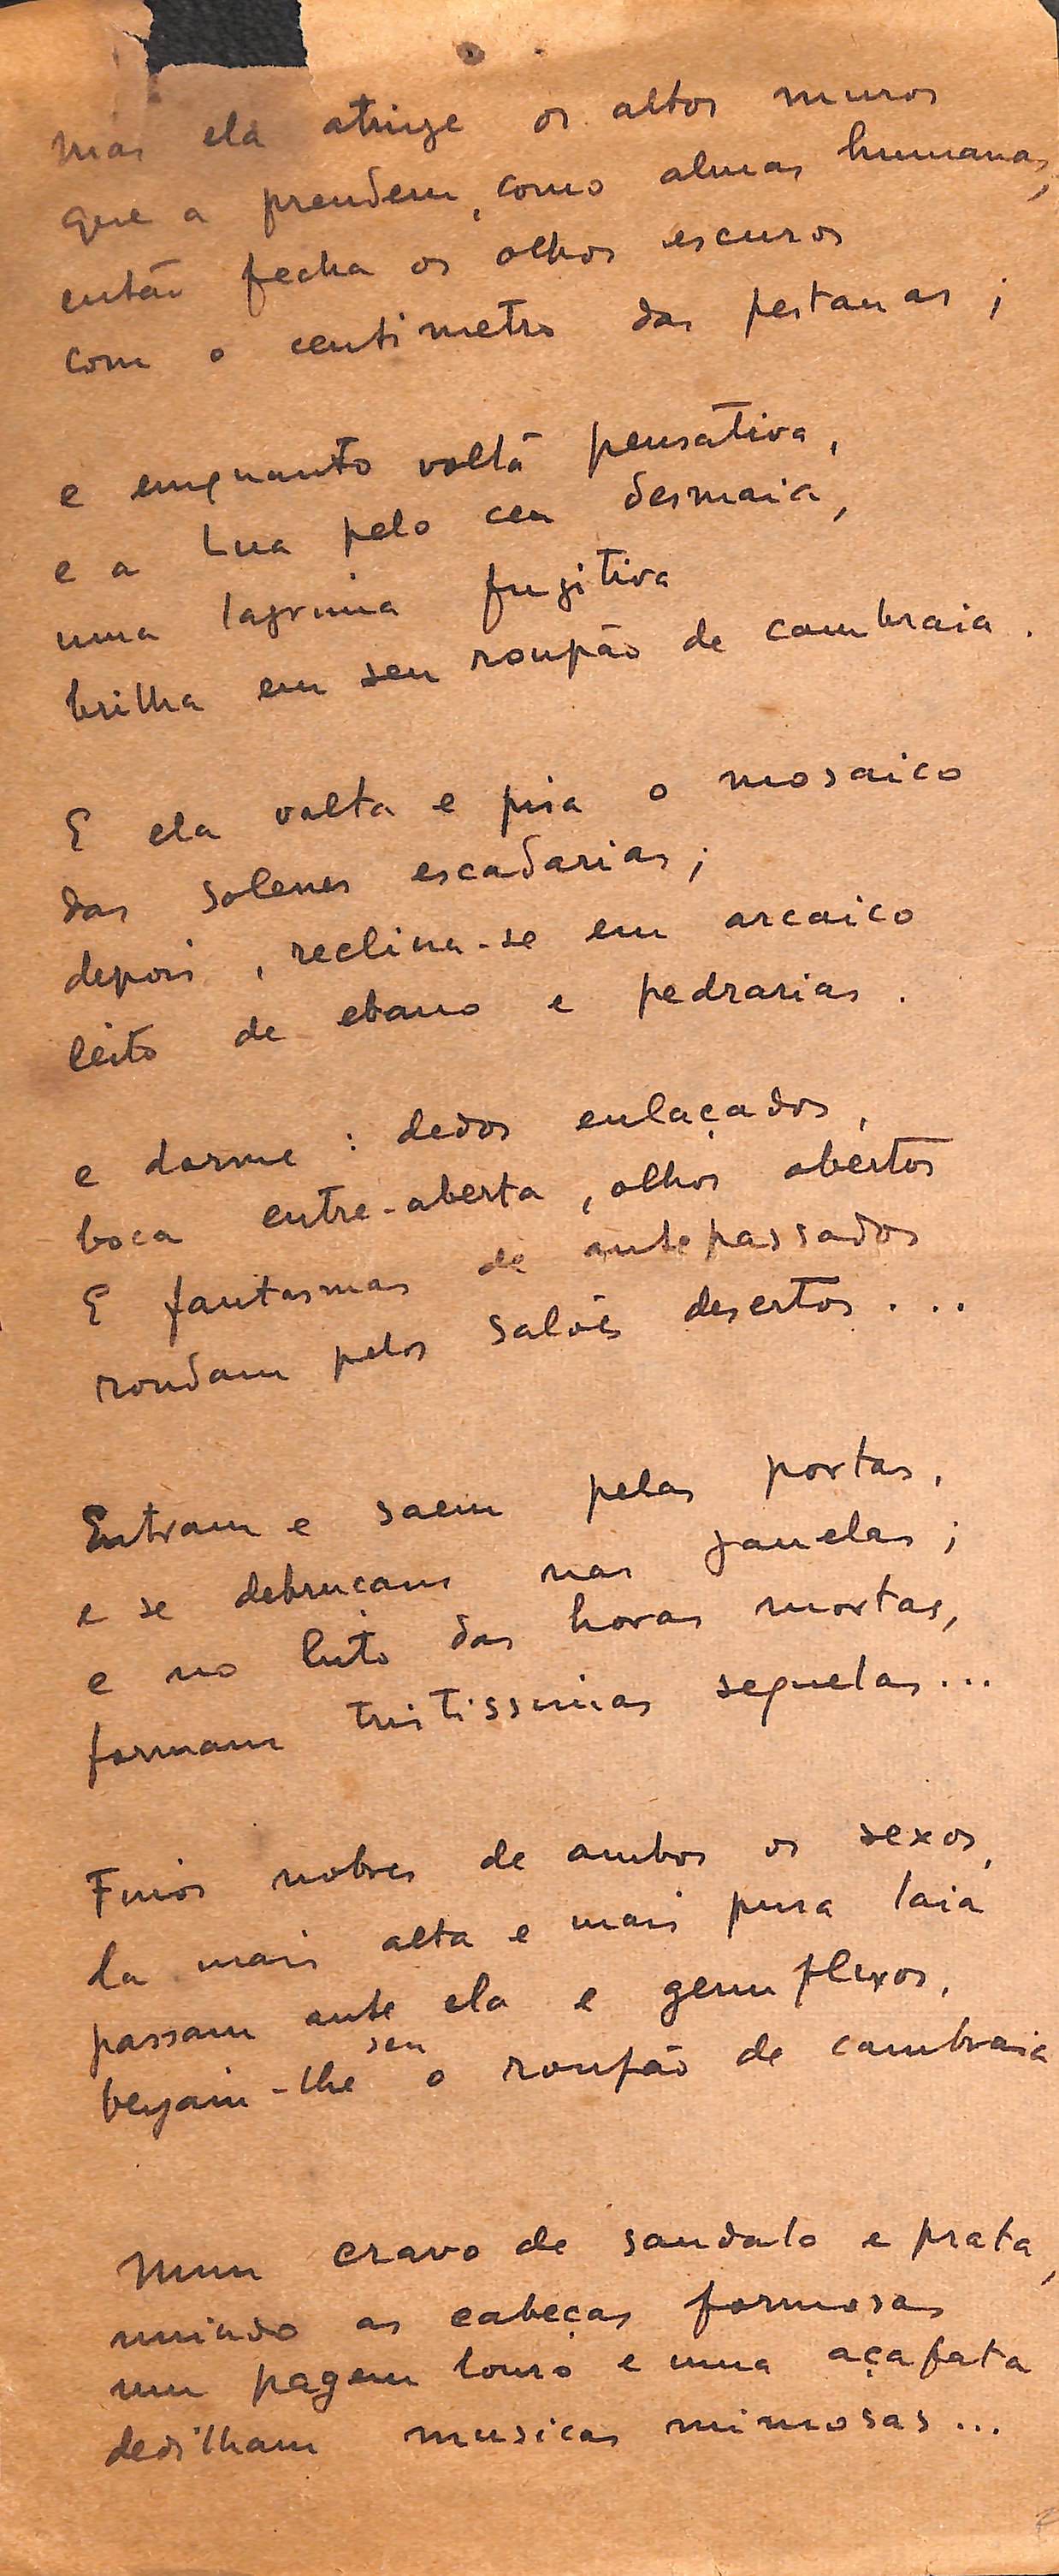 Mas ela atinge os altos muros
que a prendem, como almas humanas,
então fecha os olhos escuros
com o centimetro das pestanas;
e emquanto volta pensativa,
e a Lua pelo ceu desmaia,
uma lagrima fugitiva
brilha em seu roupão de cambraia.
E ela volta e pisa o mosaico
das solenes escadarias;
depois, reclina-se em arcaico
leito de ebano e pedrarias.
e dorme: dedos enlaçados,
boca entre-aberta, olhos abertos
E fantasmas de antepassados
rondam pelos salões desertos...
Entram e saem pelas portas,
e se debruçam nas janelas;
e no luto das horas mortas,
formam tristissimas sequelas...
Finos nobres de ambos os sexos,
da mais alta e mais pura laia
passam ante ela e genuflexos,
beijam-lhe o seu roupão de cambraia
Num cravo de sandalo e prata,
unindo as cabeças formosas
um pagem louro e uma açafata
dedilham musicas mimosas...